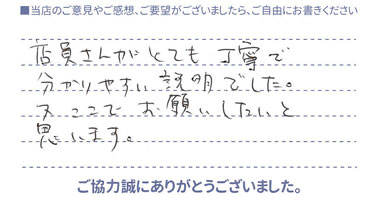 ■当店のご意見やご感想、ご要望がございましたら、ご自由にお書きください
店員さんがとても丁寧で
分かりやすい説明でした。
又ここでお願いしたいと
思います。
ご協力誠にありがとうございました。